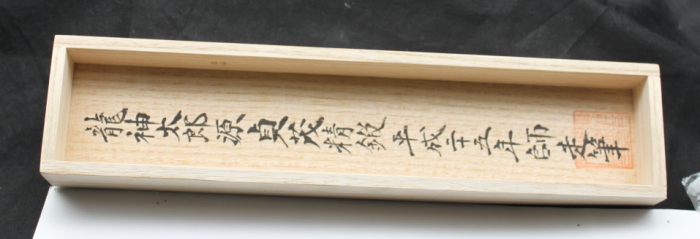 龍神太郎源貞茂精鍛 平成二十五年師走筆